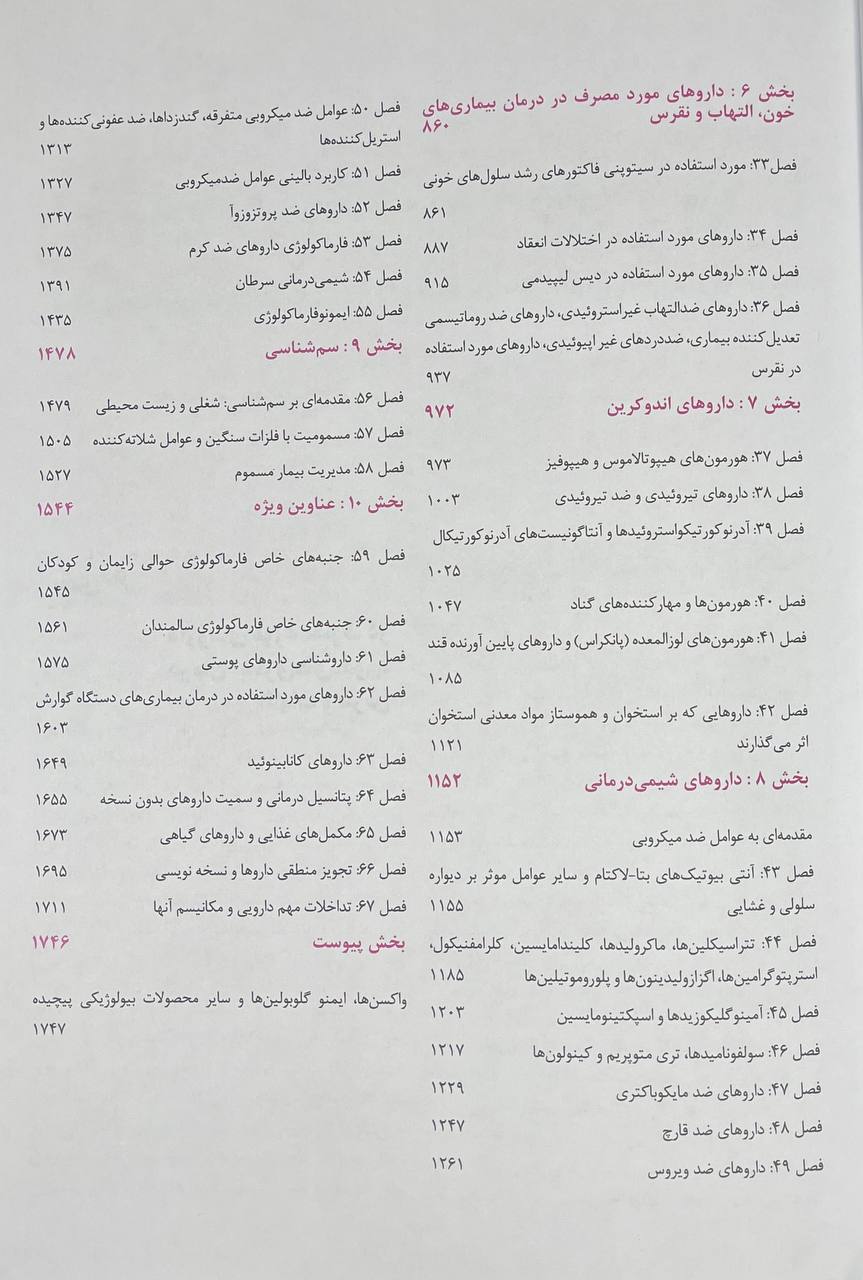 بخش ۶ : داروهای مورد مصرف در درمان بیماری‌های
خون، التهاب و نقرس ۸۶۰
فصل۳۳: مورد استفاده در سیتوپنی فاکتورهای رشد سلول‌های خونی
۸۶۱
فصل ۳۴: داروهای مورد استفاده در اختلالات انعقاد ۸۸۷
فصل ۳۵: داروهای مورد استفاده در دیس لیپیدمی ۹۱۵
فصل ۳۶: داروهای ضدالتهاب غیراستروئیدی، داروهای ضد روماتیسمی
تعدیل‌کننده بیماری، ضددردهای غیر اپیوئیدی، داروهای مورد استفاده
در نقرس ۹۳۷
بخش ۷ : داروهای اندوکرین ۹۷۲
فصل ۳۷: هورمون‌های هیپوتالاموس و هیپوفیز ۹۷۳
فصل ۳۸: داروهای تیروئیدی و ضد تیروئیدی ۱۰۰۳
فصل ۳۹: آدرنوکورتیکواستروئیدها و آنتاگونیست‌های آدرنوکورتیکال
۱۰۲۵
فصل ۴۰: هورمون‌ها و مهارکننده‌های گناد ۱۰۴۷
فصل ۴۱: هورمون‌های لوزالمعده (پانکراس) و داروهای پایین آورنده قند
۱۰۸۵
فصل ۴۲: داروهایی که بر استخوان و هموستاز مواد معدنی استخوان
اثر می‌گذارند ۱۱۲۱
بخش ۸ : داروهای شیمی‌درمانی ۱۱۵۲
مقدمه‌ای به عوامل ضد میکروبی ۱۱۵۳
فصل ۴۳: آنتی بیوتیک‌های بتا-لاکتام و سایر عوامل موثر بر دیواره
سلولی و غشایی ۱۱۵۵
فصل ۴۴: تتراسیکلین‌ها، ماکرولیدها، کلیندامایسین، کلرامفنیکول،
استرپتوگرامین‌ها، اگزازولیدینون‌ها و پلوروموتیلین‌ها ۱۱۸۵
فصل ۴۵: آمینوگلیکوزیدها و اسپکتینومایسین ۱۲۰۳
فصل ۴۶: سولفونامیدها، تری متوپریم و کینولون‌ها ۱۲۱۷
فصل ۴۷: داروهای ضد مایکوباکتری ۱۲۲۹
فصل ۴۸: داروهای ضد قارچ ۱۲۴۷
فصل ۴۹: داروهای ضد ویروس ۱۲۶۱
فصل ۵۰: عوامل ضد میکروبی متفرقه، گندزداها، ضد عفونی‌کننده‌ها و
استریل‌کننده‌ها ۱۳۱۳
فصل ۵۱: کاربرد بالینی عوامل ضدمیکروبی ۱۳۲۷
فصل ۵۲: داروهای ضد پروتزوزوآ ۱۳۴۷
فصل ۵۳: فارماکولوژی داروهای ضد کرم ۱۳۷۵
فصل ۵۴: شیمی‌درمانی سرطان ۱۳۹۱
فصل ۵۵: ایمونوفارماکولوژی ۱۴۳۵
بخش ۹ : سم‌شناسی ۱۴۷۸
فصل ۵۶: مقدمه‌ای بر سم‌شناسی: شغلی و زیست محیطی ۱۴۷۹
فصل ۵۷: مسمومیت با فلزات سنگین و عوامل شلاته‌کننده ۱۵۰۵
فصل ۵۸: مدیریت بیمار مسموم ۱۵۲۷
بخش ۱۰ : عناوین ویژه ۱۵۴۴
فصل ۵۹: جنبه‌های خاص فارماکولوژی حوالی زایمان و کودکان
۱۵۴۵
فصل ۶۰: جنبه‌های خاص فارماکولوژی سالمندان ۱۵۶۱
فصل ۶۱: داروشناسی داروهای پوستی ۱۵۷۵
فصل ۶۲: داروهای مورد استفاده در درمان بیماری‌های دستگاه گوارش
۱۶۰۳
فصل ۶۳: داروهای کانابینوئید ۱۶۴۹
فصل ۶۴: پتانسیل درمانی و سمیت داروهای بدون نسخه ۱۶۵۵
فصل ۶۵: مکمل‌های غذایی و داروهای گیاهی ۱۶۷۳
فصل ۶۶: تجویز منطقی داروها و نسخه نویسی ۱۶۹۵
فصل ۶۷: تداخلات مهم دارویی و مکانیسم آنها ۱۷۱۱
بخش پیوست ۱۷۴۶
واکسن‌ها، ایمنو گلوبولین‌ها و سایر محصولات بیولوژیکی پیچیده
۱۷۴۷